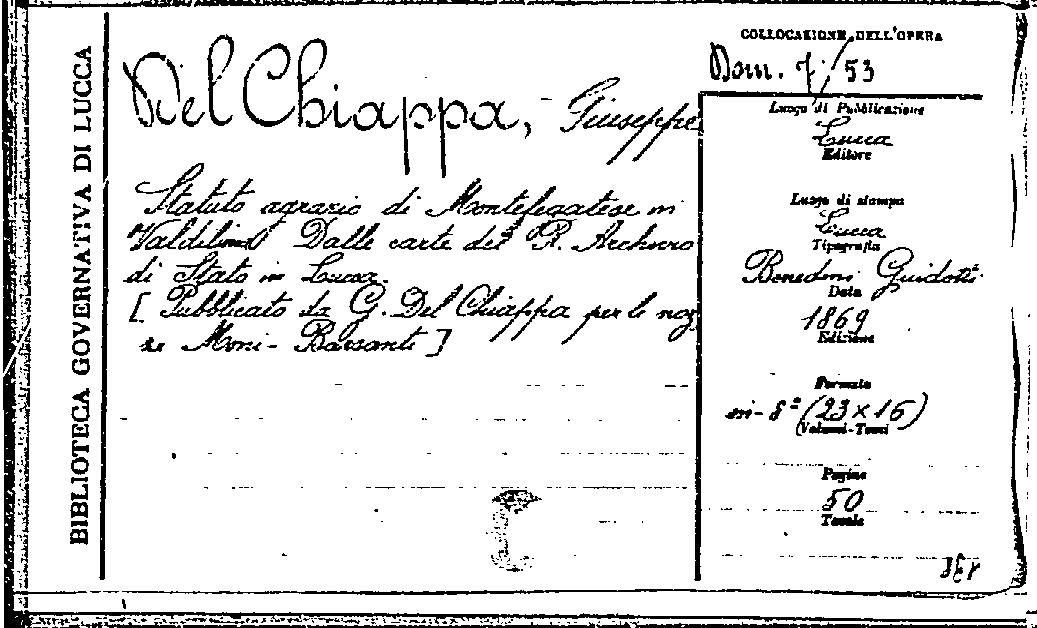 BIBLIOTECA GOVERNATIVA DI LUCCA
Del Chiappa, Giuseppe
Statuto agrario di Montefegatese in
Valdilima Dalle carte del R. Archivio
di Stato in Lucca.
[Pubblicato da G. Del Chiappa per le noz
ze Moni-Barsanti]
COLLOCAZIONE DELL'OPERA
Dom. 7/53
Luogo di Pubblicazione
Lucca
Editore
Luogo di stampa
Lucca
Tipografia
Benedini Guidotti
Data
1869
Edizione
Formato
in-8º (23×16)
(Volumi-Tomi
Pagine
50
Tavole